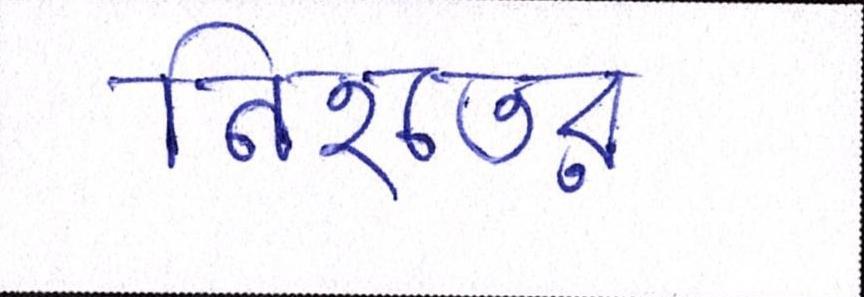 নিহতের